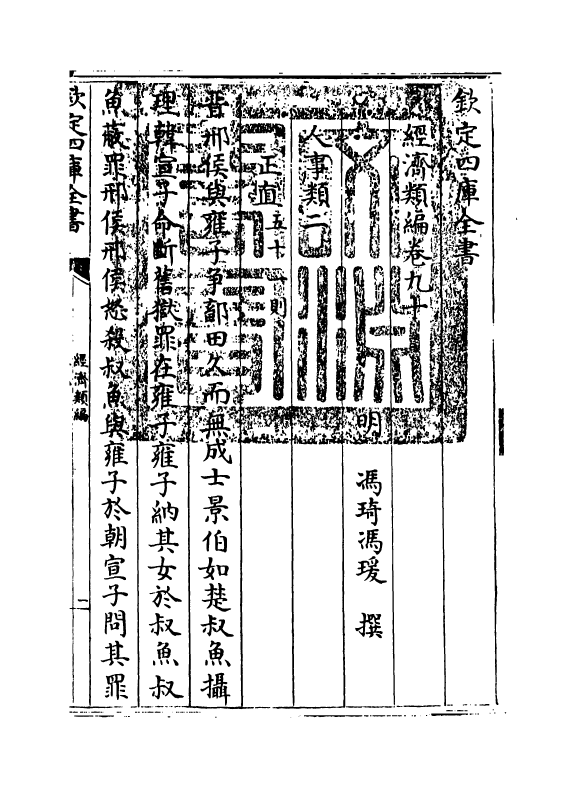 欽定四庫全書
經濟類編卷九十
明 馮琦馮瑗 撰
人事類二
正直五十一則
晉邢侯與雍子爭鄐田久而無成士景伯如楚叔魚攝
理韓宣子命斷舊獄罪在雍子雍子納其女於叔魚叔
魚蔽罪邢侯邢侯怒殺叔魚與雍子於朝宣子問其罪
欽定四庫全書
經濟類編